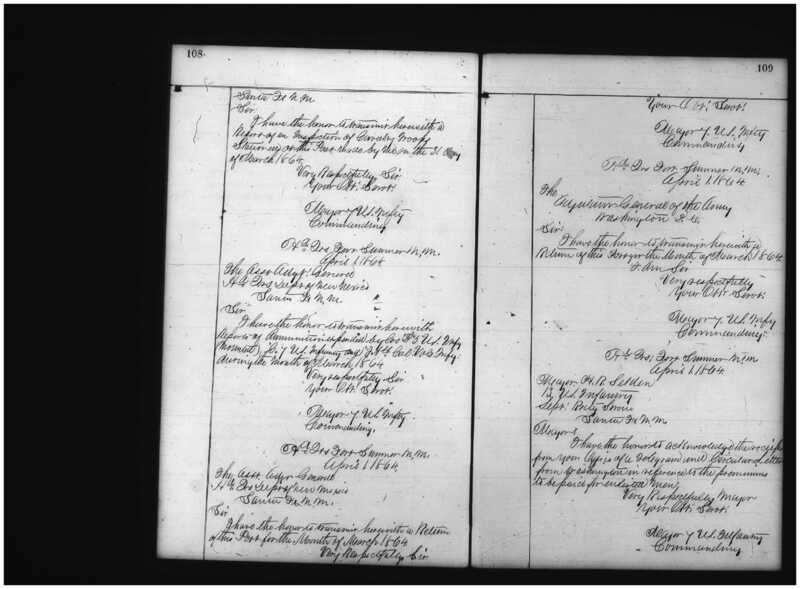 108.
Santa Fe N.M.
Sir
I have the honor to transmit herewith a
Report of an Inspection of Cavalry Troops
Stationed at this Post made by me on the 31 Day
of March 1864
Very Respectfully Sir
Your Obt. Servt.
Major 7 U.S. Infty
Commanding
Hd. Qrs Fort Sumner N.M.
April 1, 1864
The Asst Adjt. General
Hd. Qrs Dept of New Mexico
Santa Fe N.M.
Sir
I have the honor to transmit herewith
Reports of Ammunition expended by Cos
U.S. Infy
7 U.S. Infantry and Cal. Vols Infy.
during the Month of March 1864
Very respectfully Sir
Your Obt. Servt.
Major 7 U.S. Infty
Commanding.
Hd. Qrs Fort Sumner N.M.
April 1, 1864
The Asst. Adjt General
Hd. Qrs Dept of New Mexico
Santa Fe N.M.
Sir
I have the honor to transmit herewith a Return
of this Post for the Month of March 1864
Very Respectfully Sir
109
Your Obt. Servt.
Major 7 U.S. Infty
Commanding
Hd. Qrs Fort Sumner N.M.
April 1, 1864
The
Adjutant General of the Army
Washington D.C.
Sir
I have the honor to transmit herewith a
Return of this Post for the Month of March 1864
I am Sir
Very respectfully
Your Obt. Servt.
Major 7 U.S. Infy
Commanding.
Hd. Qrs. Fort Sumner N.M.
April 1, 1864
Major H. R. Selden
13 U.S. Infantry
Supt. Recg Service
Santa Fe N.M.
Major
I have the honor to acknowledge the receipt
from your Office of a Telegram and Circular Letter
from Washington in reference to the premiums
to be paid for enlisted Men
Very Respectfully Major
Your Obt. Servt.
Major 7 U.S. Infantry
Commanding